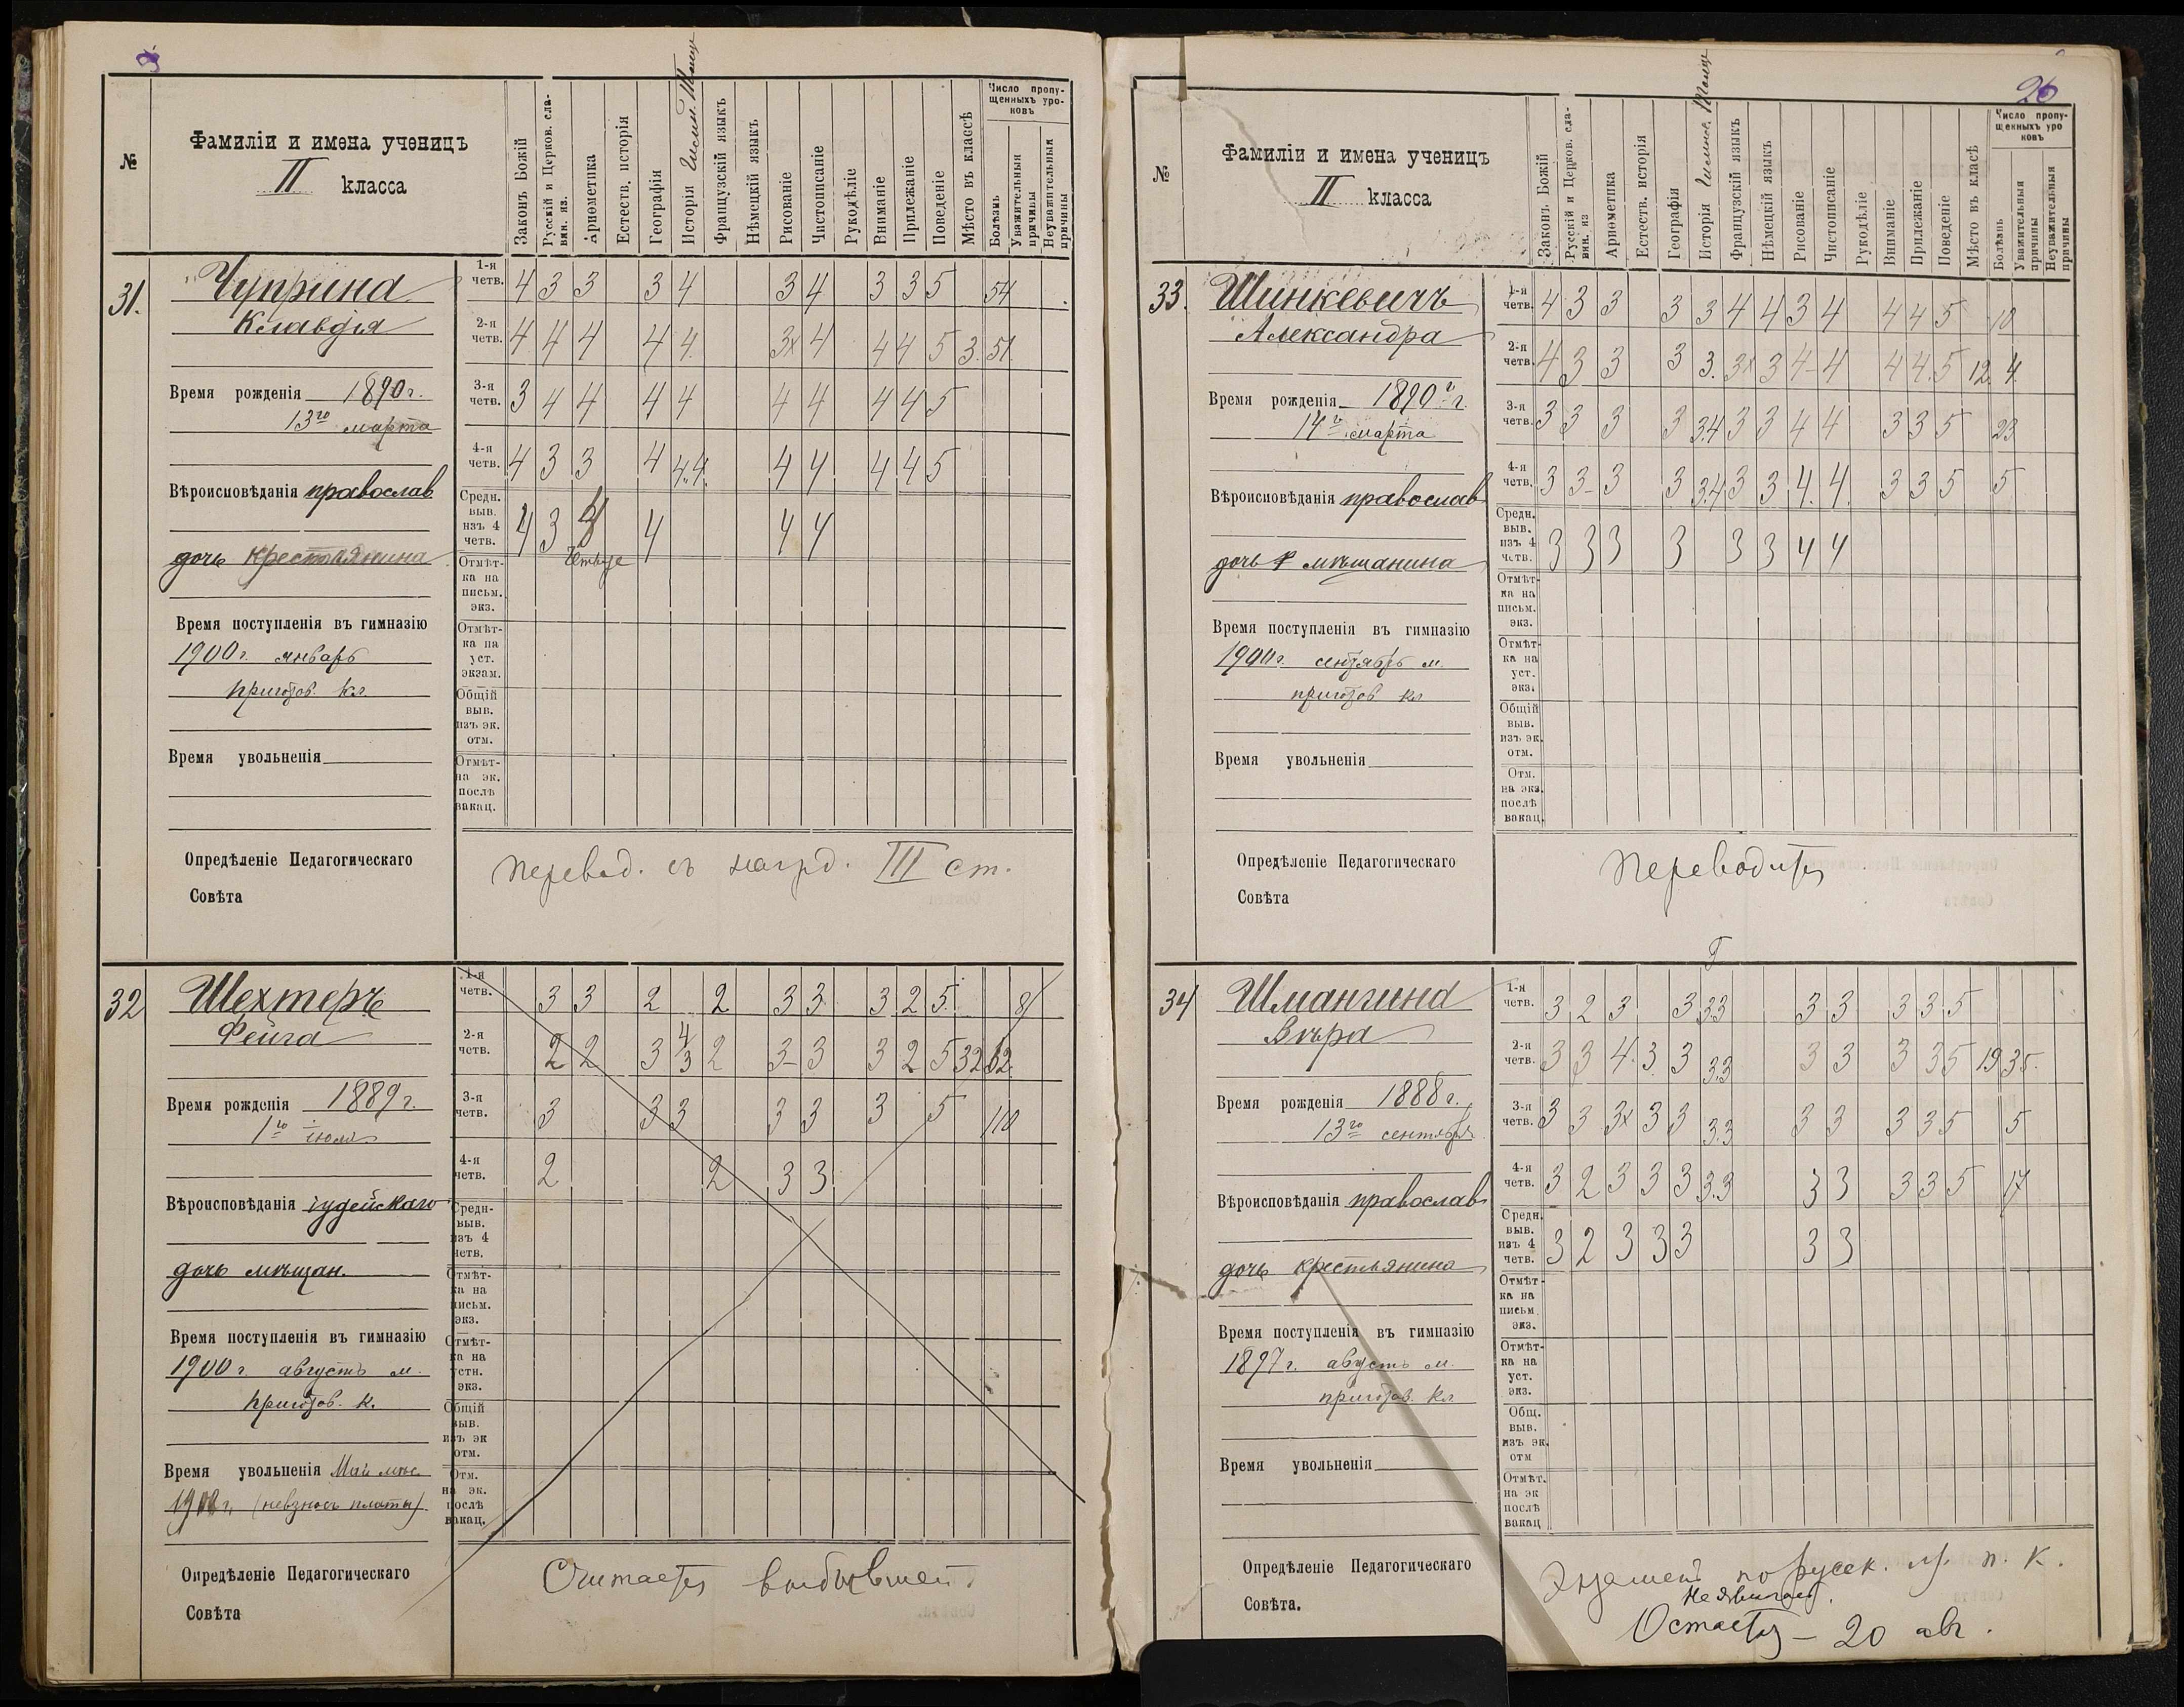 26
№
Фамиліи и имена ученицъ
II класса
Законъ Божій
Русскій и Церков. сла-
вян. яз.
Ариѳметика
Естеств. исторія
Географія
Исторія
Французскій языкъ
Нѣмецкій языкъ
Рисованіе
Чистописаніе
Рукодѣліе
Вниманіе
Прилежаніе
Поведеніе
Мѣсто въ классѣ
Число пропу-
щенныхъ уро-
ковъ
Болѣзнь
Уважительныя
причины
Неуважительныя
причины
31.
Чуприна
Клавдія
Время рожденія 1890 г.
13го марта
Вѣроисповѣданія православ
дочь крестьянина
Время поступленія въ гимназію
1900 г. январь
приготов. кл
Время увольненія
Опредѣленіе Педагогическаго
Совѣта
1-я
четв. 4 3 3 3 4 3 4 3 3 5 54
2-я
четв. 4 4 4 4 4 3x 4 4 4 5 3. 51
3-я
четв. 3 4 4 4 4 4 4 4 4 5
4-я
четв. 4 3 3 4 4.4. 4 4 4 4 5
Средн.
выв.
изъ 4
четв. 4 3 4 4 4
Отмѣт-
ка на
письм.
экз.
Отмѣт-
ка на
уст.
экзам.
Общій
выв.
изъ эк.
отм.
Отмѣт-
на эк.
послѣ
вакац.
Перевод. съ нагрд. III ст.
32
Шехтеръ
Фейга
Время рожденія 1889 г.
1го іюля
Вѣроисповѣданія іудейскаго
дочь мѣщан.
Время поступленія въ гимназію
1900 г. августъ м.
приготов. к.
Время увольненія Май мѣс.
(невзносъ платы)
Опредѣленіе Педагогическаго
Совѣта
1-я
четв. 3 3 2 2 3 3 3 2 5 8
2-я
четв. 2 2 3 4/3 2 3- 3 3 2 5 32 62.
3-я
четв. 3 3 3 3 3 3 5 110
4-я
четв. 2 2 3 3
Средн-
выв.
изъ 4
четв.
Отмѣт-
ка на
письм.
экз.
Отмѣт-
ка на
устн.
экз.
Общій
выв.
изъ эк
отм.
Отм.
на эк.
послѣ
вакац.
Считается выбывшей.
№
Фамиліи и имена ученицъ
II класса
Законъ Божій
Русскій и Церков. сла-
вян. яз
Ариѳметика
Естеств. исторія
Географія
Исторія
Французскій языкъ
Нѣмецкій языкъ
Рисованіе
Чистописаніе
Рукодѣліе
Вниманіе
Прилежаніе
Поведеніе
Мѣсто въ класѣ
Число пропу-
щенныхъ уро
ковъ
Болѣзнь
Уважительныя
причины
Неуважительныя
причины
33.
Шинкевичъ
Александра
Время рожденія 1890 г.
14го марта
Вѣроисповѣданія православ
дочь мѣщанина
Время поступленія въ гимназію
1900 г. сентябрь м.
приготов кл
Время увольненія
Опредѣленіе Педагогическаго
Совѣта
1-я
четв. 4 3 3 3 3 4 4 3 4 4 4 5 10
2-я
четв. 4 3 3 3 3. 3x 3 4- 4 4 4. 5 12. 4.
3-я
четв. 3 3 3 3 3.4 3 3 4 4 3 3 5 23
4-я
четв. 3 3- 3 3 3.4 3 3 4. 4. 3 3 5 5
Средн.
выв.
изъ 4
четв. 3 3 3 3 3 3 4 4
Отмѣт-
ка на
письм.
экз.
Отмѣт-
ка на
уст.
экз.
Общій
выв.
изъ эк.
отм.
Отм.
на экз.
послѣ
вакац.
Переводится
34
Шмангина
Вѣра
Время рожденія 1888 г.
13го сентября
Вѣроисповѣданія православ
дочь крестьянина
Время поступленія въ гимназію
1897 г. августъ м.
приготов. кл
Время увольненія
Опредѣленіе Педагогическаго
Совѣта.
1-я
четв. 3 2 3 3 3.3 3 3 3 3 5
2-я
четв. 3 3 4. 3. 3 3.3 3 3 3 3 5 19 35.
3-я
четв. 3 3 3x 3 3 3.3 3 3 3 3 5 5
4-я
четв. 3 2 3 3 3 3.3 3 3 3 3 5 17
Средн.
выв.
изъ 4
четв. 3 2 3 3 3 3 3
Отмѣт-
ка на
письм.
экз.
Отмѣт-
ка на
уст.
экз.
Общ.
выв.
изъ эк.
отм
Отмѣт.
на эк
послѣ
вакац
Экзаменъ по русск.
Не явилась.
Остается – 20 авг.